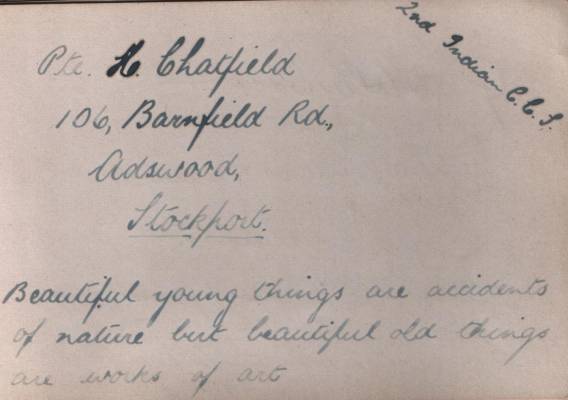 2nd Indian C.C.S.
Pte. H. Chatfield
106, Barnfield Rd.,
Adswood,
Stockport.
Beautiful young things are accidents
of nature but beautiful old things
are works of art